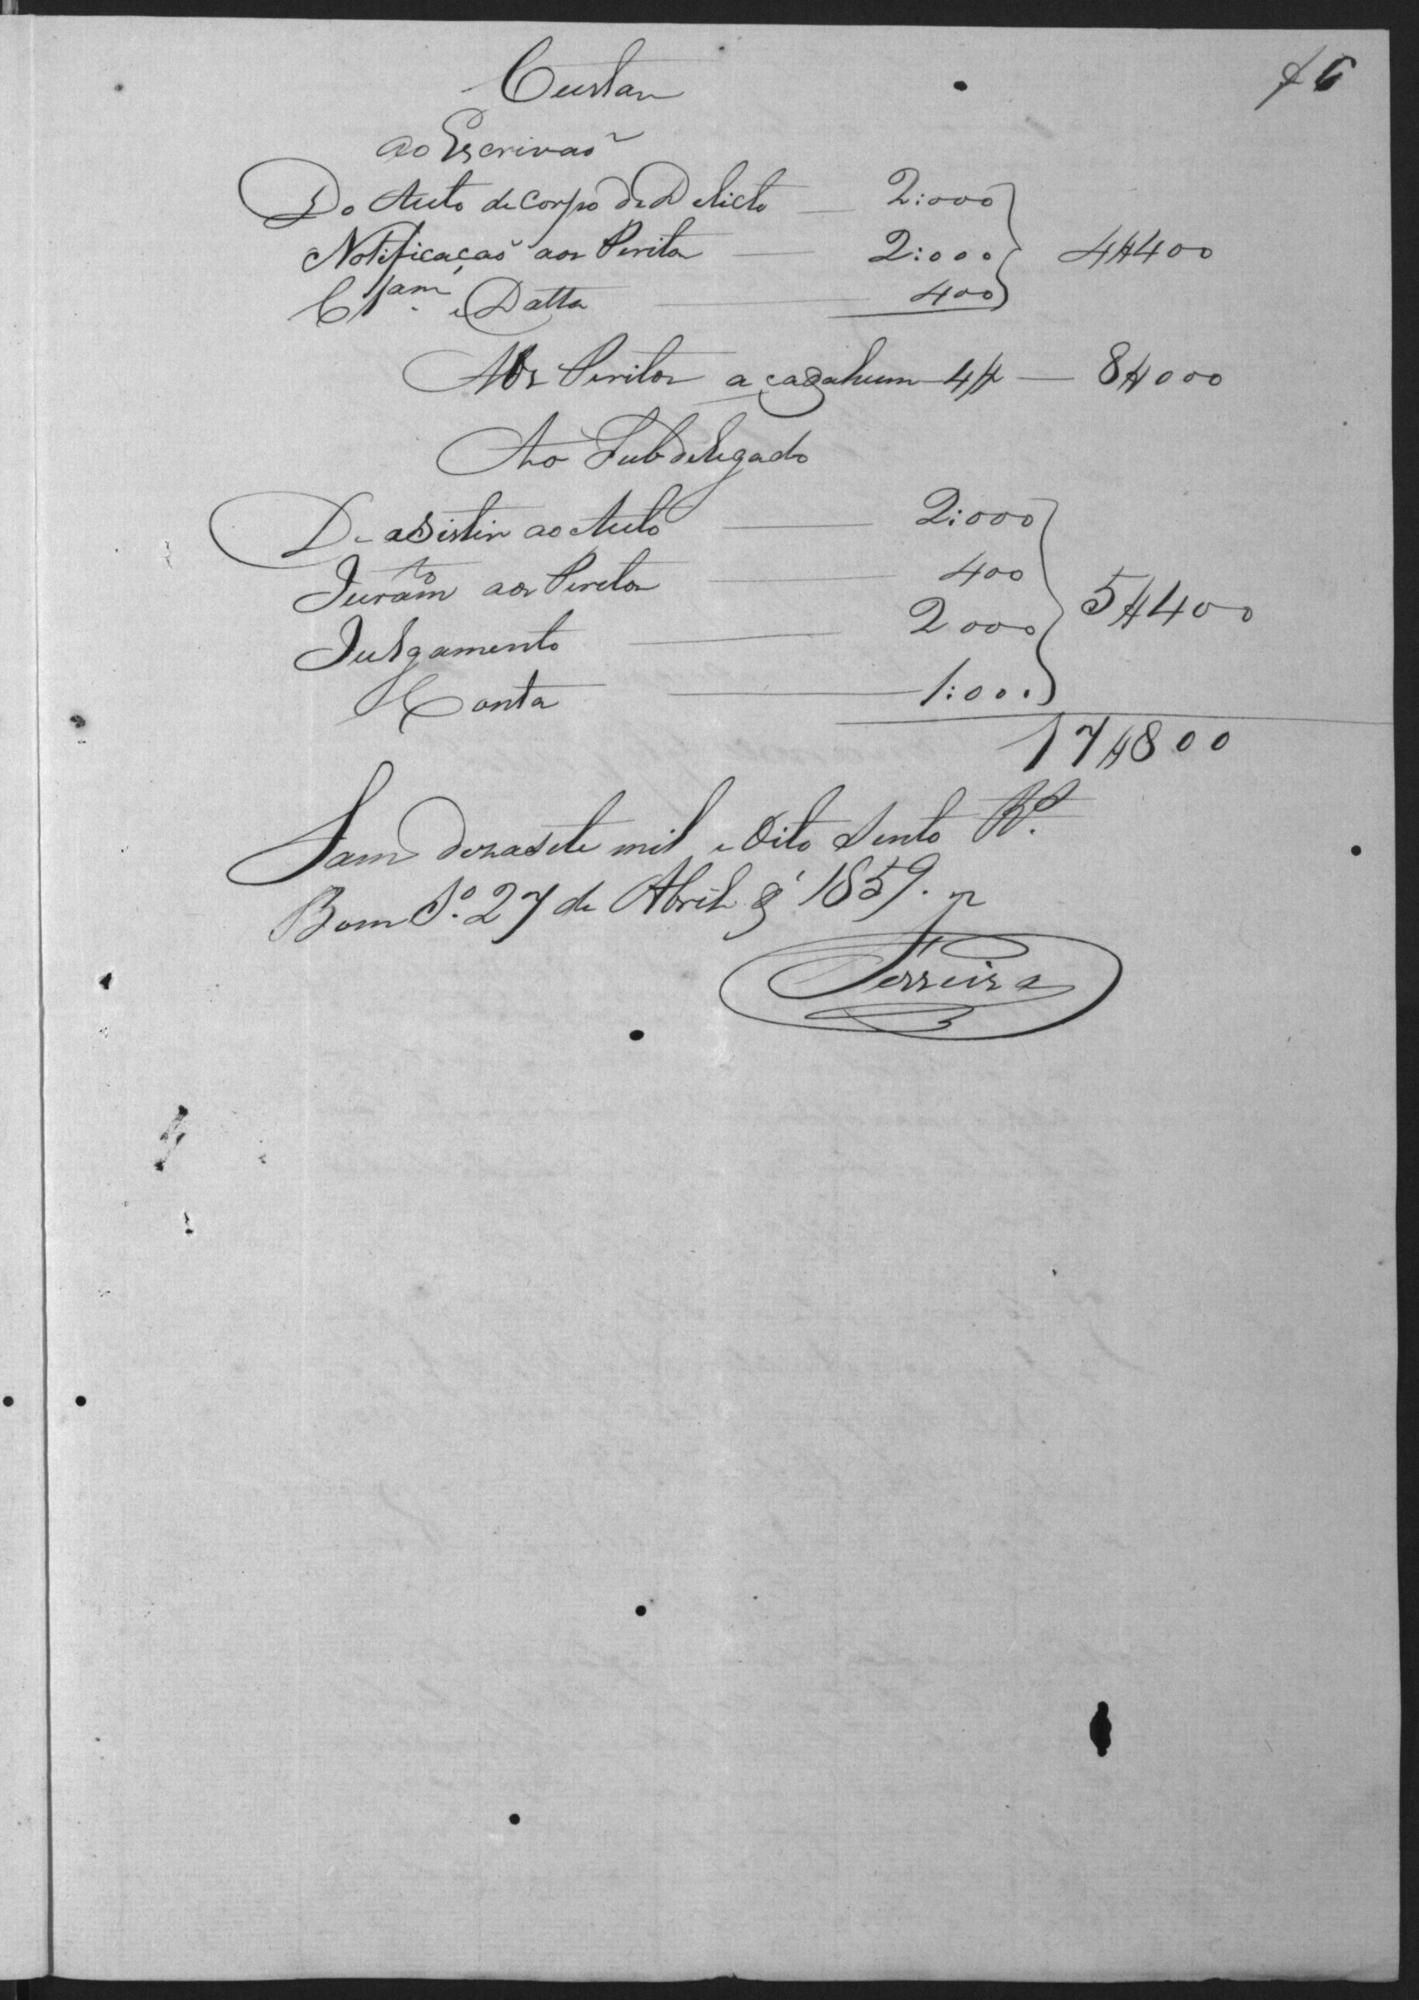 6
Custas
ao Escrivaõ
Do Auto de corpo de Delicto — 2:000
Notificaçaõ aos Peritos — 2:000 4$400
Clsam. e Datta — 400
Aos Peritos a cadahum 4$ — 8$000
Ao Subdelegado
De asistir ao Auto — 2:000
Juramto aos Peritos — 400
Julgamento — 2000 5$400
Conta — 1:000
17$800
Sam dezasete mil e Oito Sento Rs.
Bom Sº. 27 de Abril de 1859.
Ferreira